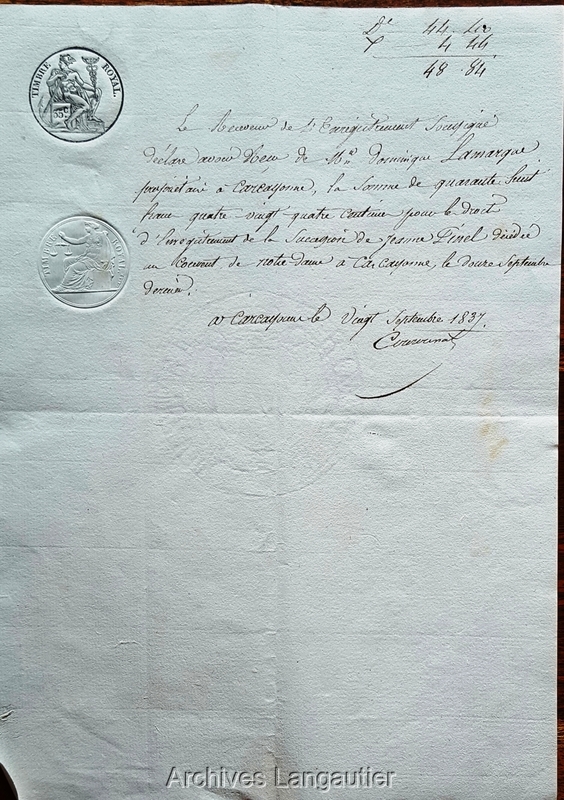 TIMBRE ROYAL.
35 C
Dt 44 . 40
4 44
48 . 84
Le Receveur de l'Enregistrement Soussigné
déclare avoir Reçu de Mr. Dominique Lamarque
propriétaire à Carcassonne, la Somme de quarante huit
franc quatre vingt quatre centime pour le droit
d'Enregistrement de la Succession de Jeanne Pinel décédée
au Couvent de notre-dame à Carcassonne, le douze Septembre
dernier.
à Carcassonne le Vingt Septembre 1837.
Archives Langautier